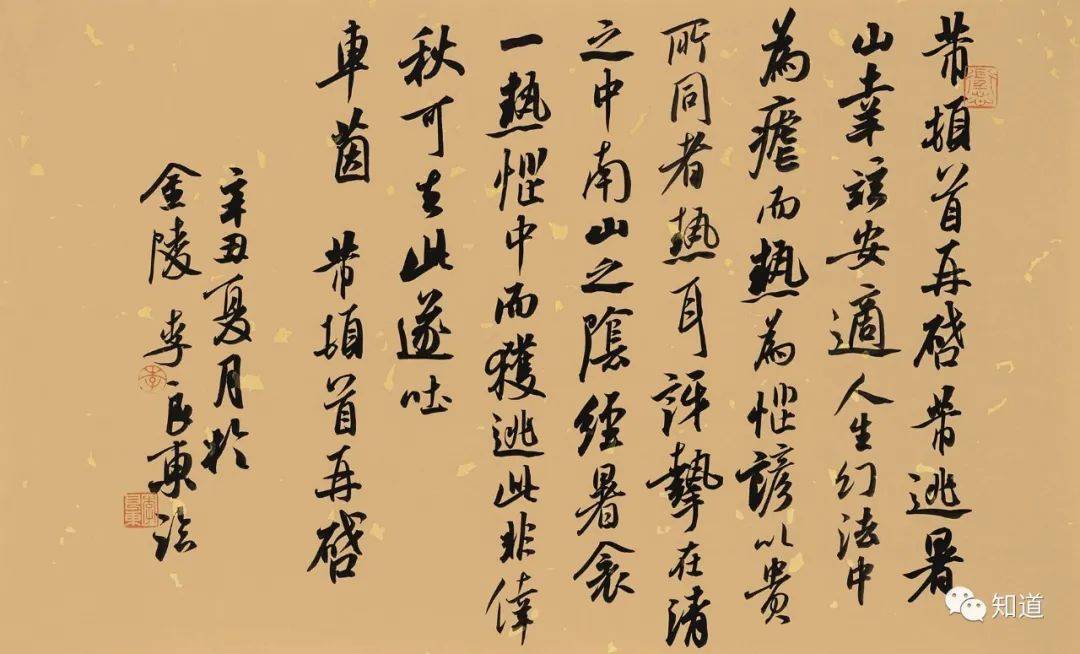 芾頓首再啓芾逃暑
山幸茲安適人生幻法中
為瘧而熱為惱諺以貴
所同者熱耳訝摯在清
之中南山之陰經暑衾
一熱惱中而獲逃此非倖
秋可去此遂吐
車茵 芾頓首再啓
辛丑夏月於
金陵 李良東臨
知道